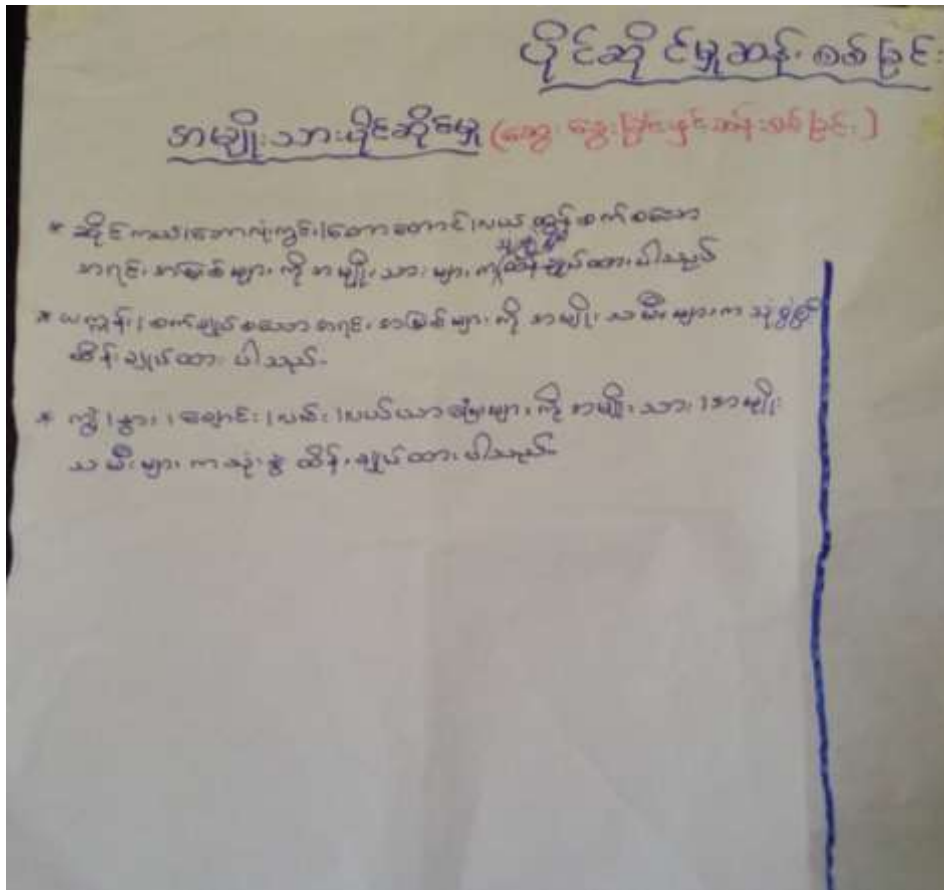 ပိုင်ဆိုင်မှုဆန်းစစ်ခြင်း
အမျိုးသားပိုင်ဆိုင်မှု (ဆွေးနွေးခြင်းနှင့်ဆန်းစစ်ခြင်း)
* ဆိုင်ကယ်၊ဘောလုံးကွင်း၊တောတောင်၊လယ်ထွန်စက်စသော
အရင်းအမြစ်များကို အမျိုးသားများက ထိန်းချုပ်ထားပါသည်
* ယက္ကန်း၊စက်ချုပ်စသောအရင်းအမြစ်များကို အမျိုးသမီးများက သုံးစွဲခွင့်
ထိန်းချုပ်ထားပါသည်။
* ကျွဲ၊နွား၊ချောင်း၊လမ်း၊လယ်ယာမြေများကို အမျိုးသား၊အမျိုး
သမီးများကသုံးစွဲ ထိန်းချုပ်ထားပါသည်။